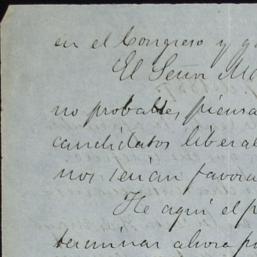 en el Congreso y
El Señor
no probables, piensa
candidatos liberal
nos serían favora
He aquí el p
terminar ahora